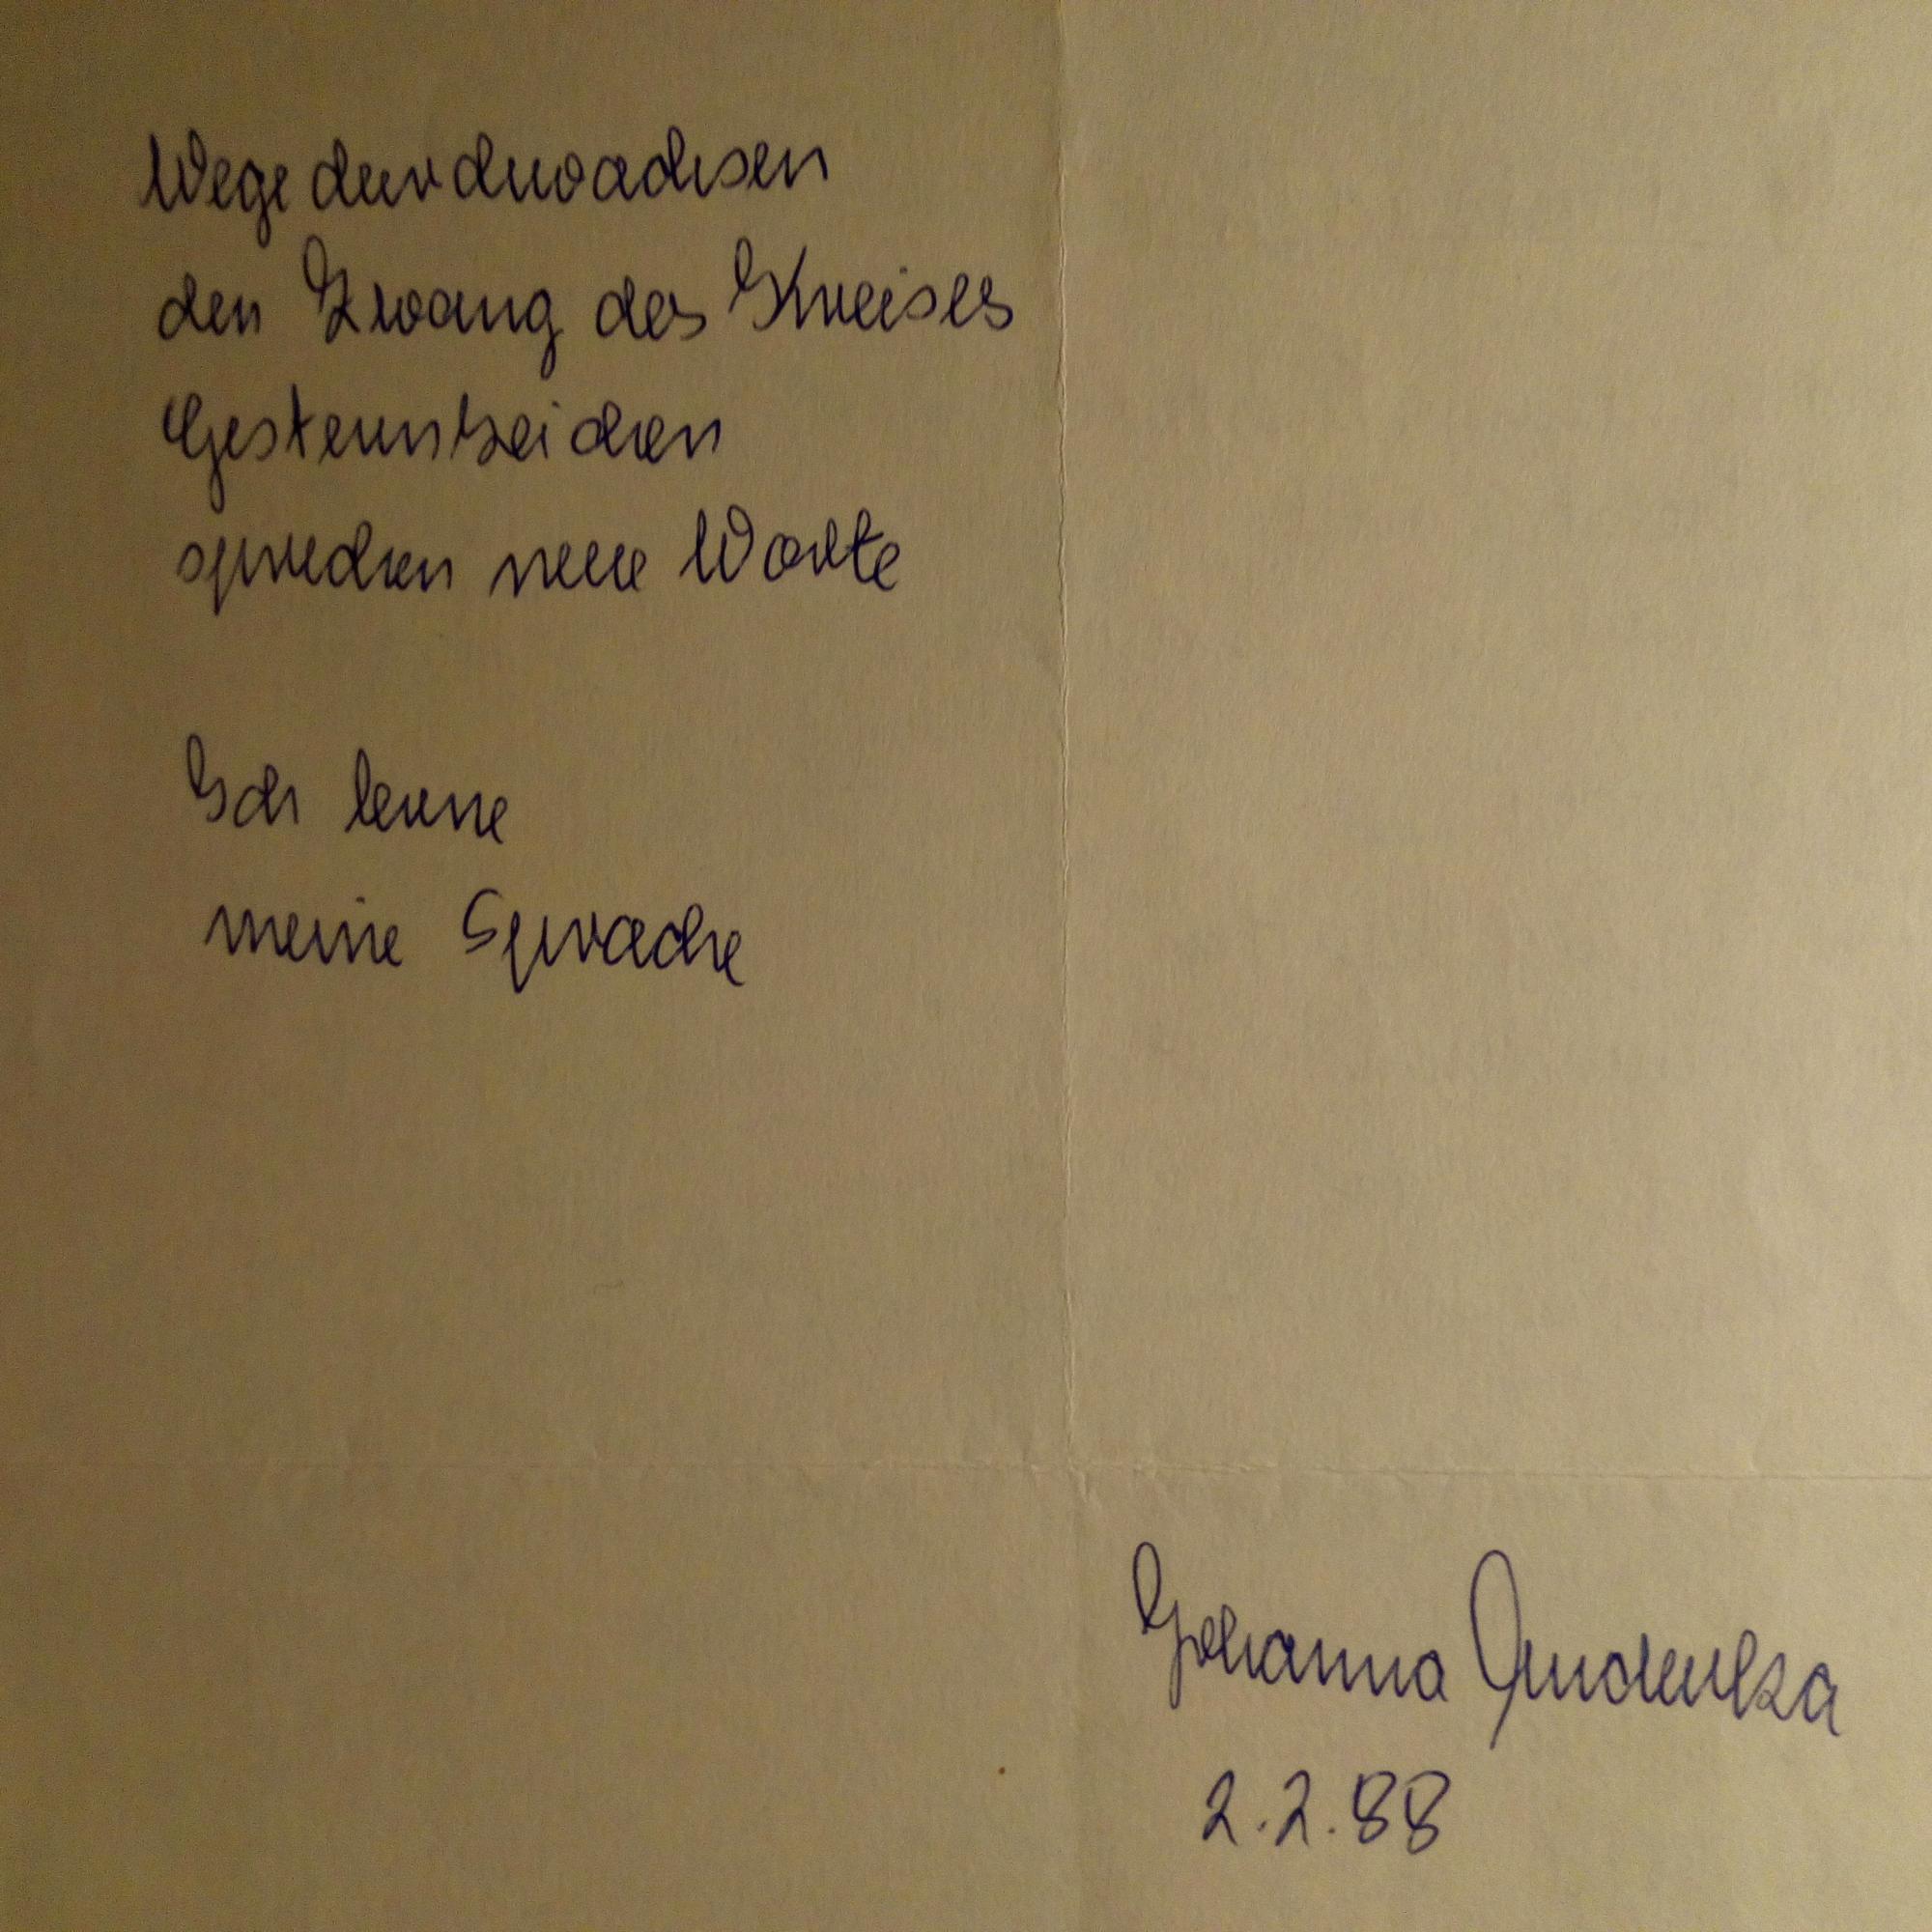 Wege durchwachsen
den Zwang des Kreises
Gesternszeichen
sprechen neue Worte
Ich lerne
meine Sprache
Johanna
2.2.88